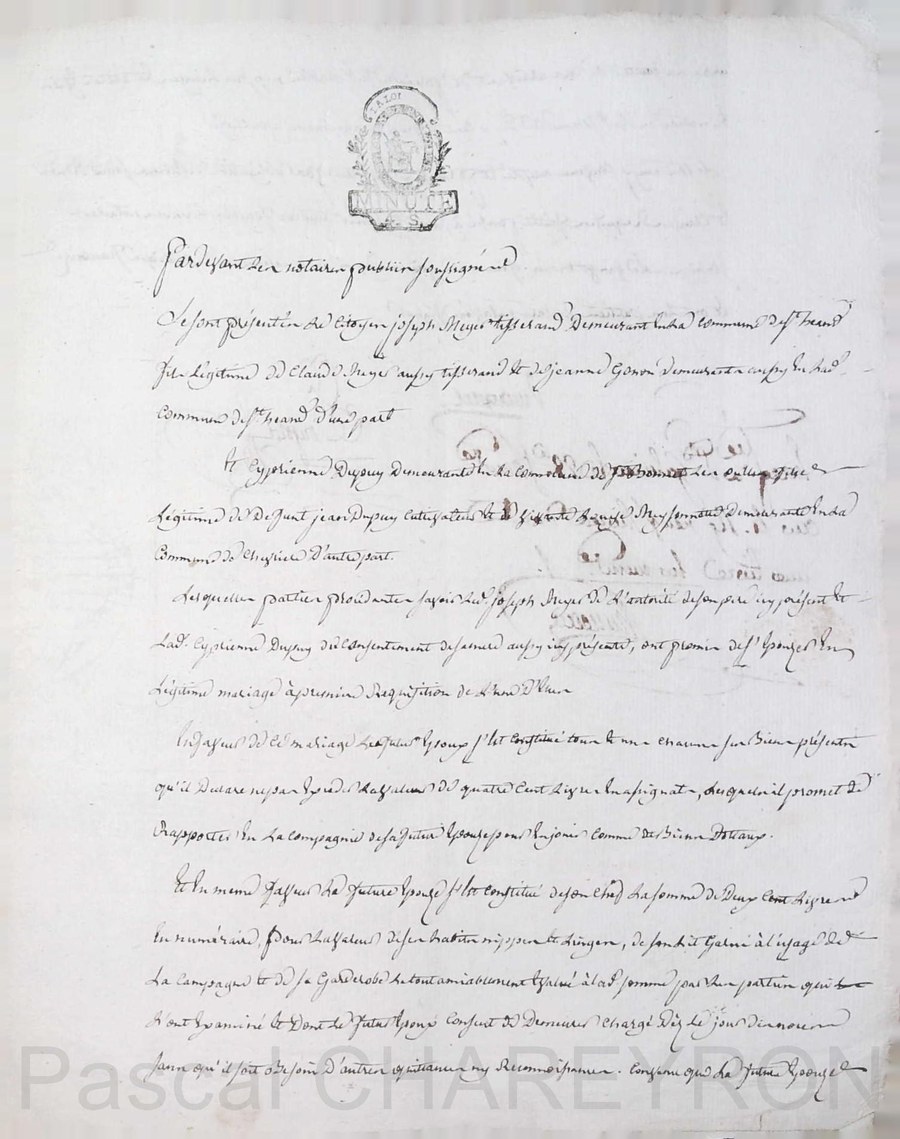 LA LOI
MINUTE
4. S.
Pardevant les notaires publics soussignés
Se sont présentés le citoyen joseph Meyer tisserand Demeurant en la commune de st heand
fils Légitime de Claude Meyer aussy tisserand et de jeanne Gonon demeurants aussy en lade
commune de st heand d'une part
Et Cyprienne Dupuy Demeurante en la commune de st Bonnet les oulles fille
Légitime de Defunt jean Dupuy cultivateur et de Demeurante en la
Commune de chevriere D'autre part.
Lesquelles parties procédantes savoir led. joseph Meyer de L'autorité de son pere icy présent et
Lad. Cyprienne Dupuy du Consentement de sa mere aussy icy présente, ont promis de s'Epouzer En
Légitime mariage à premiere Requisition de L'une D'elles
En faveur de ce mariage Le futur Epoux s'est constitué tous et uns chacuns ses Biens présents
qu'il Declare ne pas Exceder La valleur de quatre Cent Livres En assignats, Lesquels il promet de
Rapporter En La Compagnie de sa future Epouze pour En jouir Comme de Biens Dotaux.
Et En meme faveur La future Epouze s'est constitué de son Chef La somme de Deux Cent Livres
En numéraire, pour La valleur de ses habits nippes et Linges, de son Lit Garni à l'uzage de
La Campagne et de sa Garderobe Le tout amiablement Evalué à lad. somme par Les parties qui
L'ont Examiné et Dont Le futur Epoux Consent de Demeurer Chargé Dez le jour des noces
sans qu'il soit Besoin D'autres quittances ny Reconnoissances. Convenu que La future Epouze
Pascal CHAREYRON